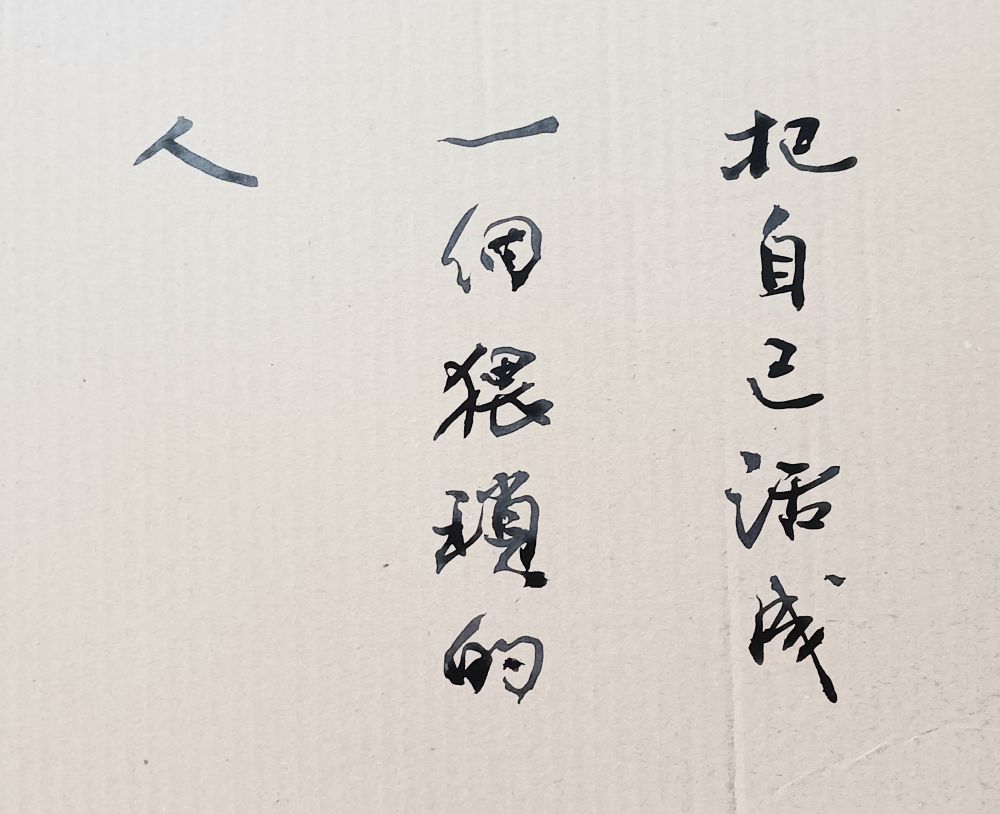 把自己活成
一個猥瑣的
人